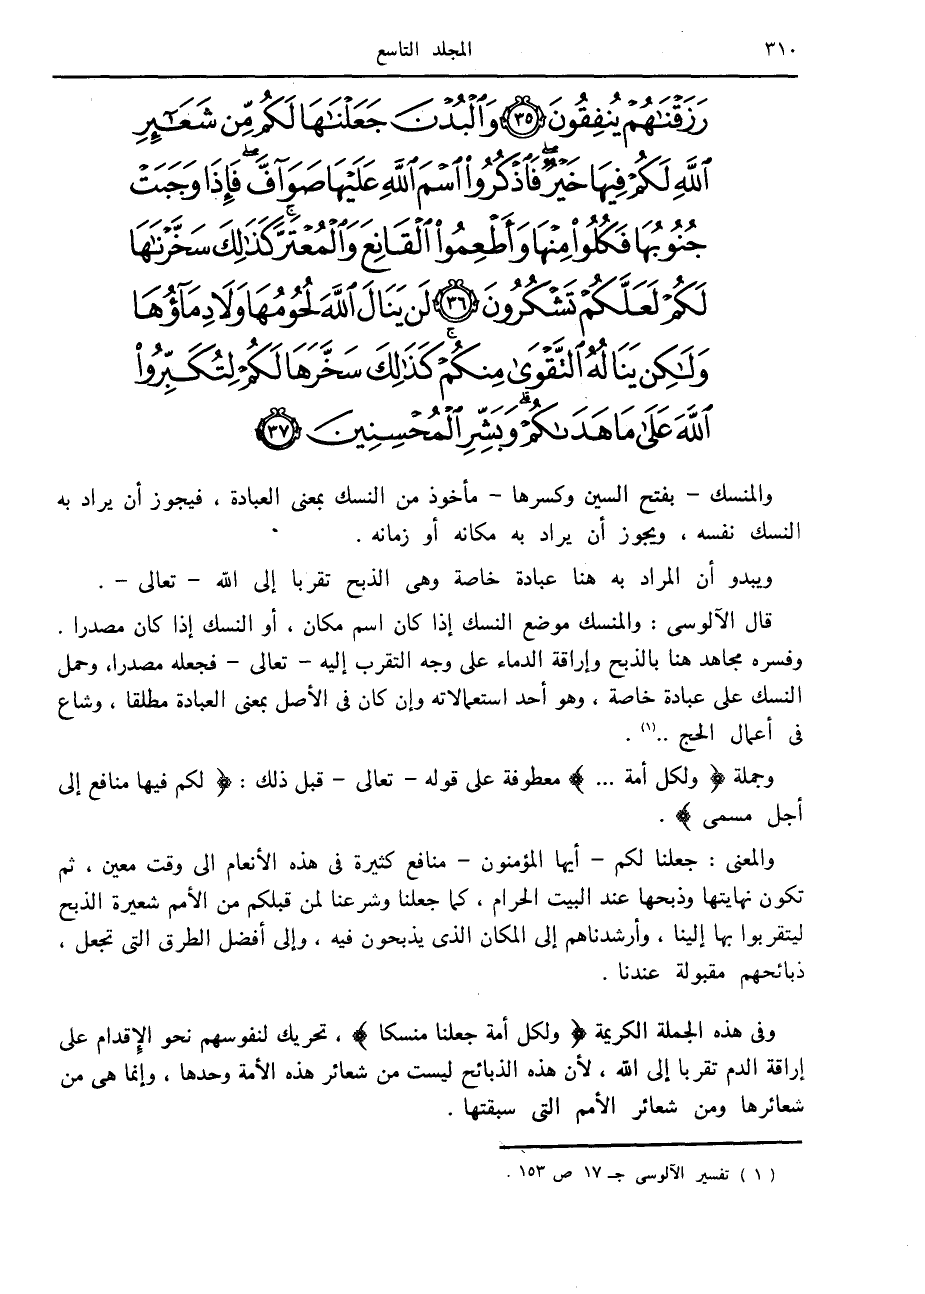 ٣١٠ المجلد التاسع
رَزَقْنَٰهُمْ يُنفِقُونَ ٣٥ وَٱلْبُدْنَ جَعَلْنَٰهَا لَكُم مِّن شَعَٰٓئِرِ
ٱللَّهِ لَكُمْ فِيهَا خَيْرٌۖ فَٱذْكُرُوا۟ ٱسْمَ ٱللَّهِ عَلَيْهَا صَوَآفَّۖ فَإِذَا وَجَبَتْ
جُنُوبُهَا فَكُلُوا۟ مِنْهَا وَأَطْعِمُوا۟ ٱلْقَانِعَ وَٱلْمُعْتَرَّۚ كَذَٰلِكَ سَخَّرْنَٰهَا
لَكُمْ لَعَلَّكُمْ تَشْكُرُونَ ٣٦ لَن يَنَالَ ٱللَّهَ لُحُومُهَا وَلَا دِمَآؤُهَا
وَلَٰكِن يَنَالُهُ ٱلتَّقْوَىٰ مِنكُمْۚ كَذَٰلِكَ سَخَّرَهَا لَكُمْ لِتُكَبِّرُوا۟
ٱللَّهَ عَلَىٰ مَا هَدَىٰكُمْۗ وَبَشِّرِ ٱلْمُحْسِنِينَ ٣٧
والمنسك – بفتح السين وكسرها – مأخوذ من النسك بمعنى العبادة ، فيجوز أن يراد به
النسك نفسه ، ويجوز أن يراد به مكانه أو زمانه .
ويبدو أن المراد به هنا عبادة خاصة وهى الذبح تقربا إلى الله – تعالى – .
قال الآلوسى : والمنسك موضع النسك إذا كان اسم مكان ، أو النسك إذا كان مصدرا .
وفسره مجاهد هنا بالذبح وإراقة الدماء على وجه التقرب إليه – تعالى – فجعله مصدرا، وحمل
النسك على عبادة خاصة ، وهو أحد استعمالاته وإن كان فى الأصل بمعنى العبادة مطلقا ، وشاع
فى أعمال الحج ..(١) .
وجملة ﴿ ولكل أمة ... ﴾ معطوفة على قوله – تعالى – قبل ذلك : ﴿ لكم فيها منافع إلى
أجل مسمى ﴾ .
والمعنى : جعلنا لكم – أيها المؤمنون – منافع كثيرة فى هذه الأنعام الى وقت معين ، ثم
تكون نهايتها وذبحها عند البيت الحرام ، كما جعلنا وشرعنا لمن قبلكم من الأمم شعيرة الذبح
ليتقربوا بها إلينا ، وأرشدناهم إلى المكان الذى يذبحون فيه ، وإلى أفضل الطرق التى تجعل ،
ذبائحهم مقبولة عندنا .
وفى هذه الجملة الكريمة ﴿ ولكل أمة جعلنا منسكا ﴾ ، تحريك لنفوسهم نحو الإقدام على
إراقة الدم تقربا إلى الله ، لأن هذه الذبائح ليست من شعائر هذه الأمة وحدها ، وإنما هى من
شعائرها ومن شعائر الأمم التى سبقتها .
( ١ ) تفسير الآلوسى جـ ١٧ ص ١٥٣ .